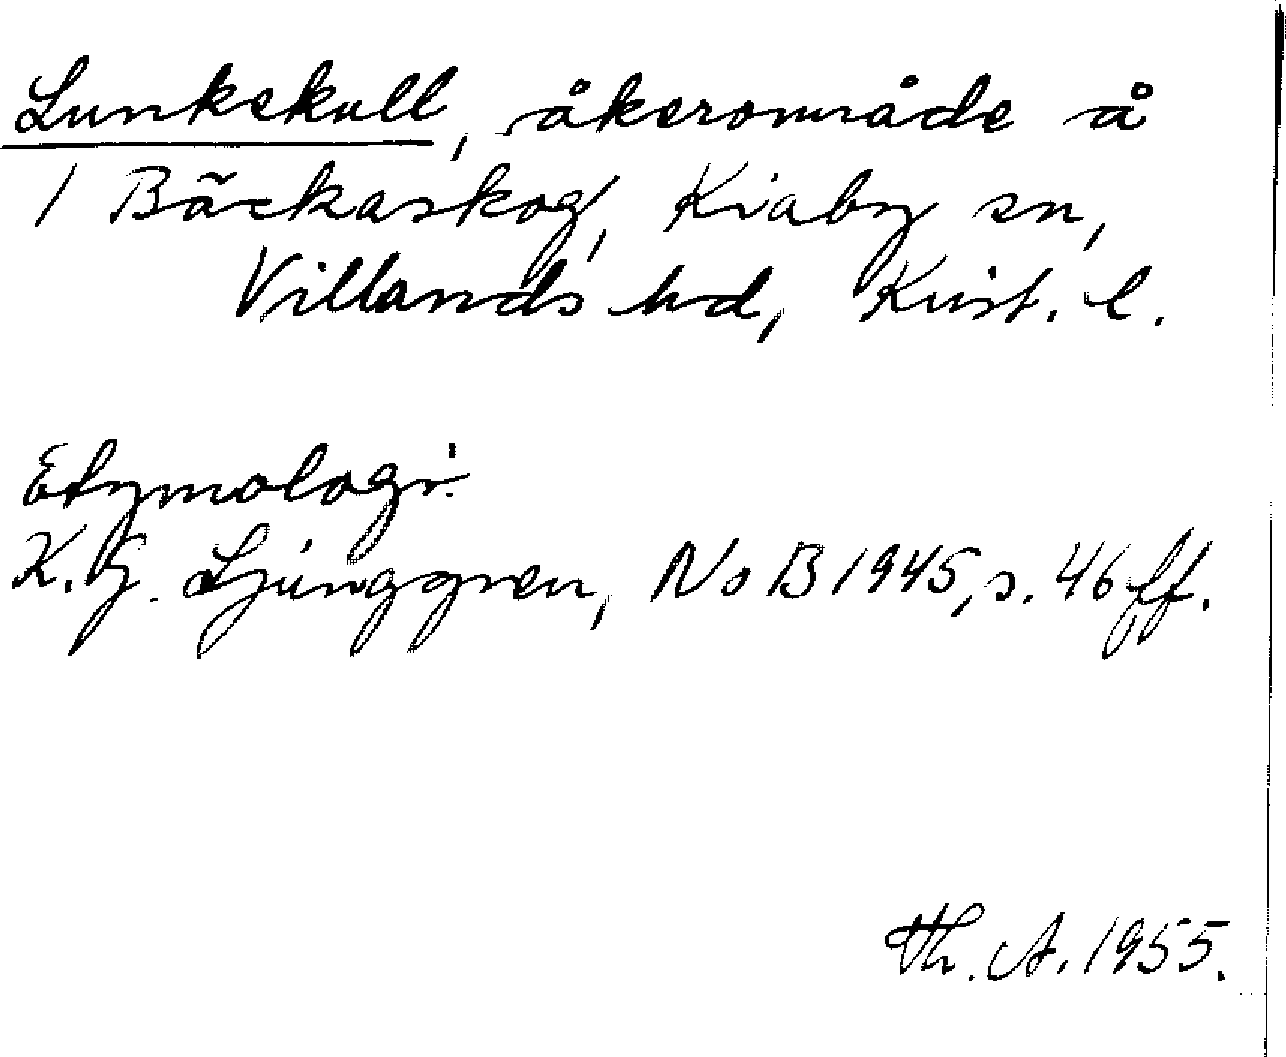 Lunkekull, åkerområde å
1 Bäckaskog, Kiaby sn,
Villands hd, Krist. l.
Etymologi:
K.G. Ljunggren, NoB 1945, s. 46 ff.
Th. A. 1955.